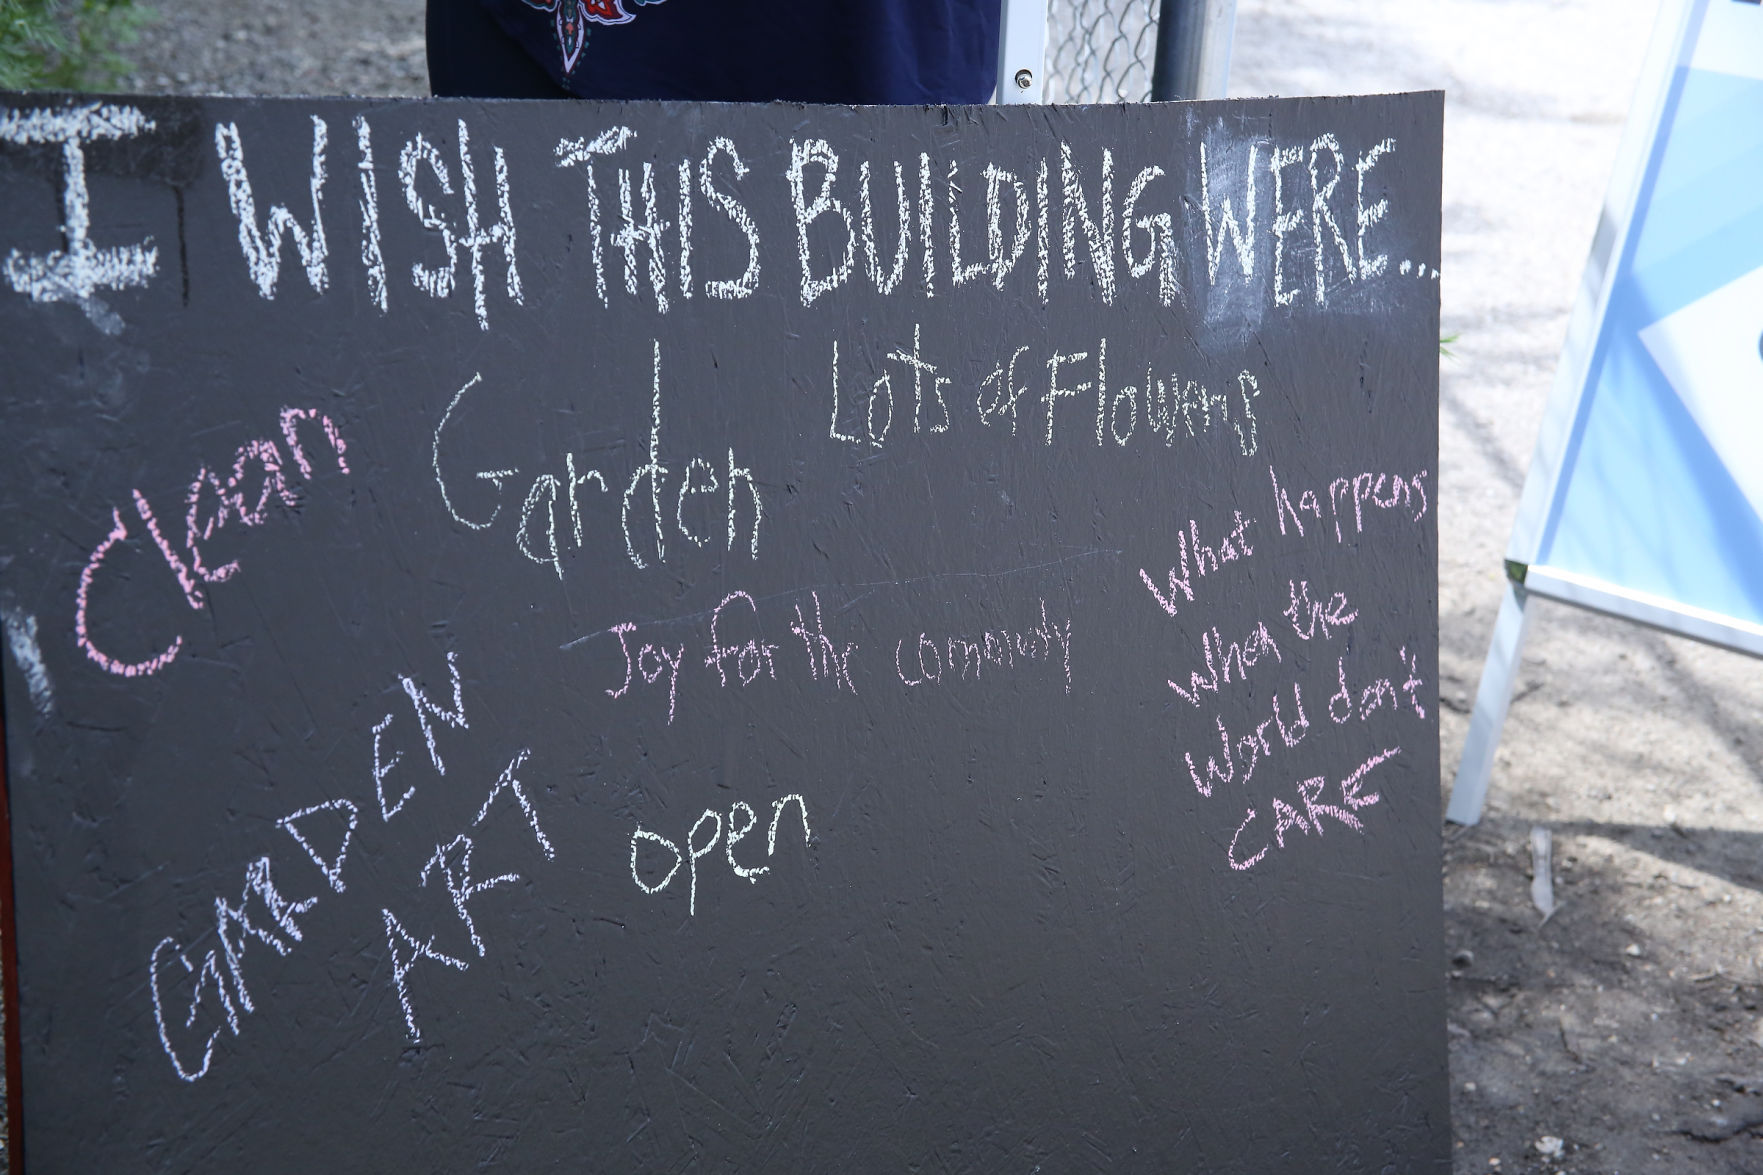 I WISH THIS BUILDING WERE...
Lots of Flowers
Garden
Clean
What happens
When the
World don't
CARE
Joy for the community
GARDEN
ART
open